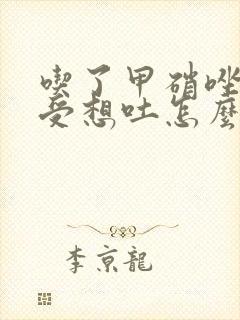 喫了甲硝唑
受想吐怎麼
李京龍